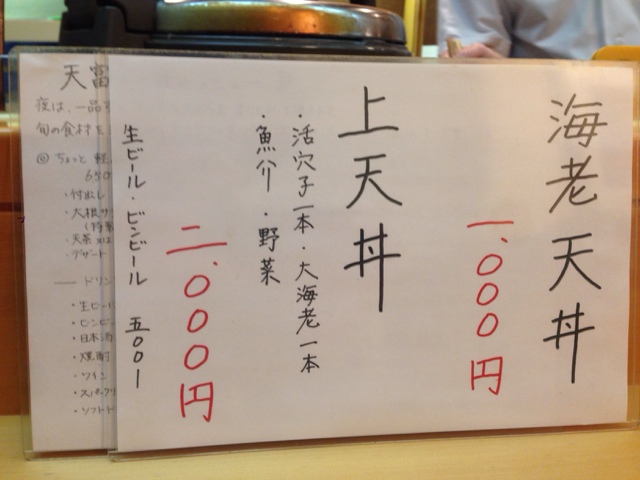 海老天丼
一、〇〇〇円
上天丼
・活穴子一本・大海老一本
・魚介・野菜
二、〇〇〇円
生ビール・ビンビール 五〇〇ー
天富
夜は、一品
旬の食材を
◎ ちょっと軽
・付出し
・大根サ
・天茶又は
・デザート
ドリン
・生ビール
・ビンビー
・日本酒
・焼酎
・ワイン
・スパークリ
・ソフトド